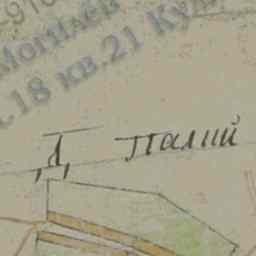 Могилев
.18 кв.21 Кул
Д Палий